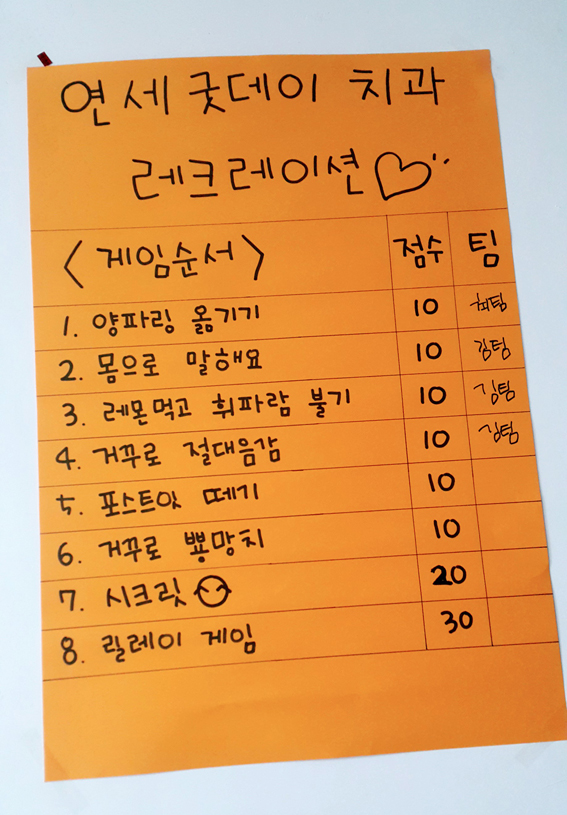 연세굿데이 치과
레크레이션♡
<게임순서> 점수 팀
1. 양파링 옮기기 10 최팀
2. 몸으로 말해요 10 김팀
3. 레몬먹고 휘파람 불기 10 김팀
4. 거꾸로 절대음감 10 김팀
5. 포스트잇 떼기 10
6. 거꾸로 뿅망치 10
7. 시크릿 20
8. 릴레이 게임 30